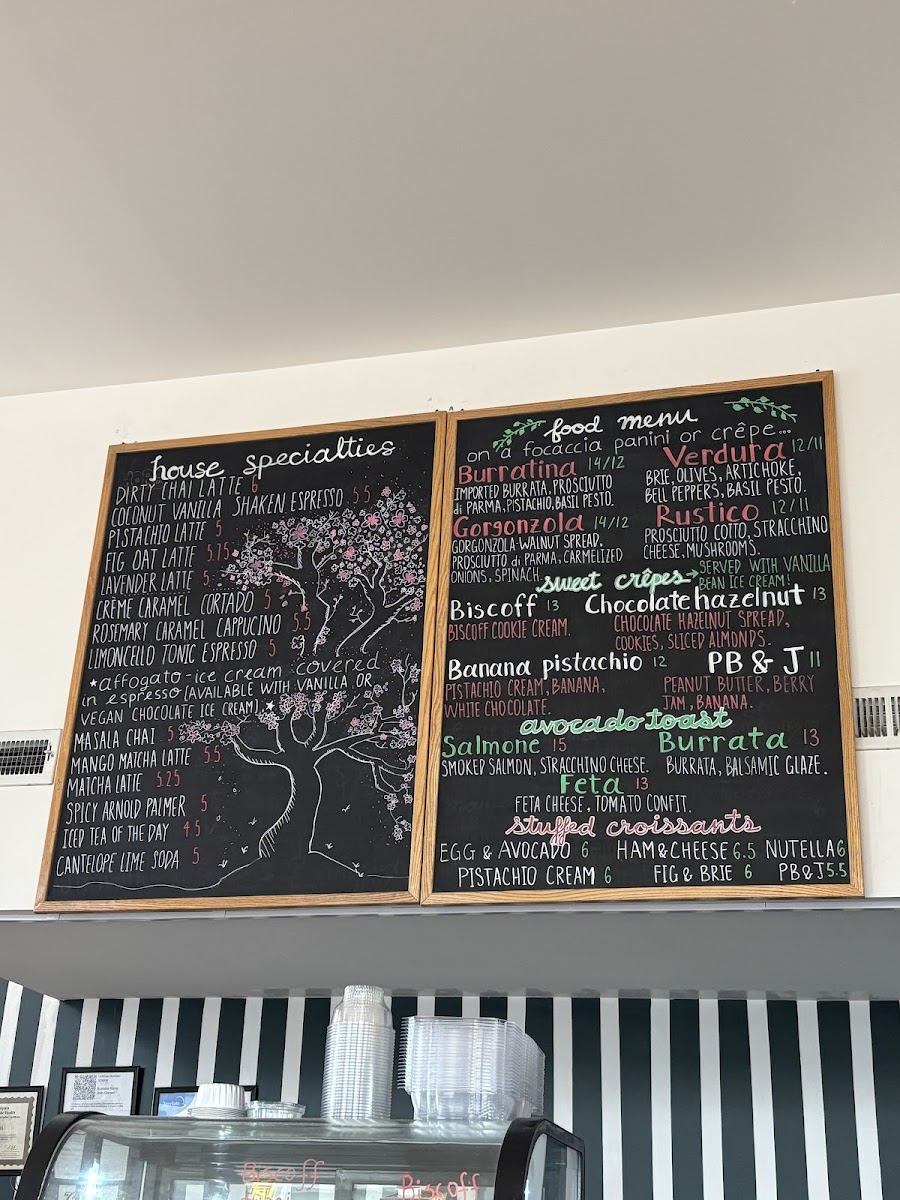 house specialties
DIRTY CHAI LATTE 6
COCONUT VANILLA SHAKEN ESPRESSO 5.5
PISTACHIO LATTE 5
FIG OAT LATTE 5.75
LAVENDER LATTE 5
CRÈME CARAMEL CORTADO 5
ROSEMARY CARAMEL CAPPUCINO 5.5
LIMONCELLO TONIC ESPRESSO 5
*affogato-ice cream covered
in espresso [AVAILABLE WITH VANILLA OR
VEGAN CHOCOLATE ICE CREAM].*
MASALA CHAI 5
MANGO MATCHA LATTE 5.5
MATCHA LATTE 5.25
SPICY ARNOLD PALMER 5
ICED TEA OF THE DAY 4.5
CANTELOPE LIME SODA 5
food menu
on a focaccia panini or crêpe...
Burratina 14/12
IMPORTED BURRATA, PROSCIUTTO
di PARMA, PISTACHIO, BASIL PESTO.
Verdura 12/11
BRIE, OLIVES, ARTICHOKE,
BELL PEPPERS, BASIL PESTO.
Gorgonzola 14/12
GORGONZOLA-WALNUT SPREAD,
PROSCIUTTO di PARMA, CARMELIZED
ONIONS, SPINACH
Rustico 12/11
PROSCIUTTO COTTO, STRACCHINO
CHEESE, MUSHROOMS.
sweet crêpes→ SERVED WITH VANILLA
BEAN ICE CREAM!
Biscoff 13
BISCOFF COOKIE CREAM.
Chocolate hazelnut 13
CHOCOLATE HAZELNUT SPREAD,
COOKIES, SLICED ALMONDS.
Banana pistachio 12
PISTACHIO CREAM, BANANA,
WHITE CHOCOLATE.
PB & J 11
PEANUT BUTTER, BERRY
JAM, BANANA.
avocado toast
Salmone 15
SMOKED SALMON, STRACCHINO CHEESE.
Burrata 13
BURRATA, BALSAMIC GLAZE.
Feta 13
FETA CHEESE, TOMATO CONFIT.
stuffed croissants
EGG & AVOCADO 6 HAM & CHEESE 6.5 NUTELLA 6
PISTACHIO CREAM 6 FIG & BRIE 6 PB & J 5.5
Biscoff
Biscoff